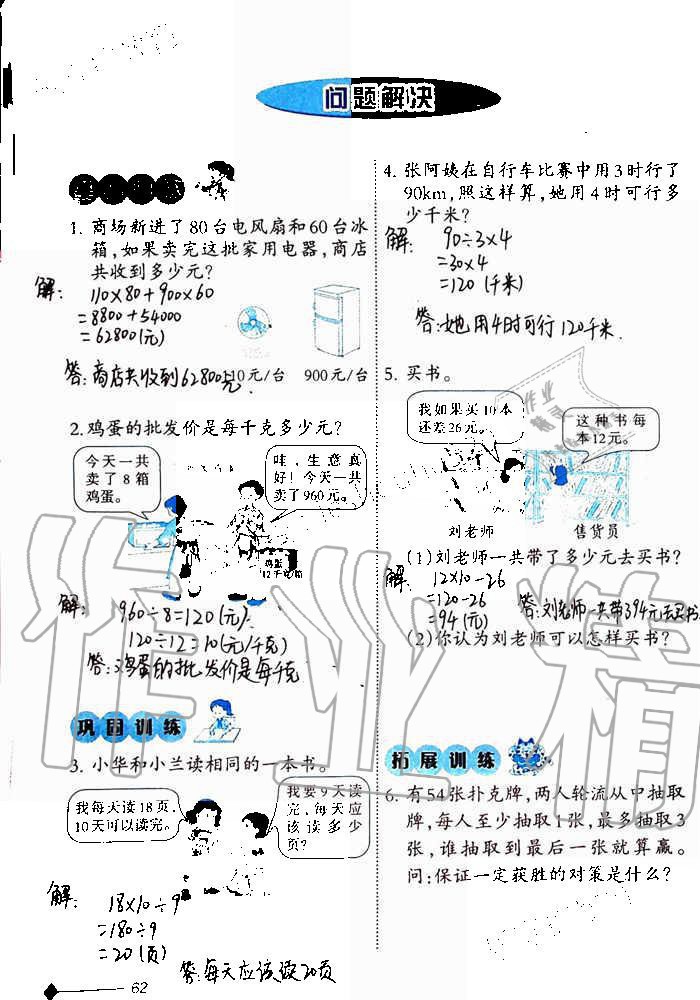 问题解决
1. 商场新进了80台电风扇和60台冰
箱,如果卖完这批家用电器,商店
共收到多少元?
解:
110×80+900×60
=8800+54000
=62800(元)
答:商店共收到62800元.
110元/台 900元/台
2. 鸡蛋的批发价是每千克多少元?
今天一共
卖了8箱
鸡蛋。
哇,生意真
好!今天一共
卖了960元。
鸡蛋
12千克/箱
解:
960÷8=120(元)
120÷12=10(元/千克)
答:鸡蛋的批发价是每千克
巩固训练
3. 小华和小兰读相同的一本书。
我每天读18页,
10天可以读完。
我要9天读
完,每天应
该读多少
页?
解:
18×10÷9
=180÷9
=20(页)
答:每天应该读20页
62
4. 张阿姨在自行车比赛中用3时行了
90km,照这样算,她用4时可行多
少千米?
解:
90÷3×4
=30×4
=120(千米)
答:她用4时可行120千米.
5. 买书。
我如果买10本
还差26元。
这种书每
本12元。
刘老师
售货员
(1)刘老师一共带了多少元去买书?
解:
12×10-26
=120-26
=94(元)
答:刘老师一共带了94元去买书
(2)你认为刘老师可以怎样买书?
拓展训练
6. 有54张扑克牌,两人轮流从中抽取
牌,每人至少抽取1张,最多抽取3
张,谁抽取到最后一张就算赢。
问:保证一定获胜的对策是什么?
作业精